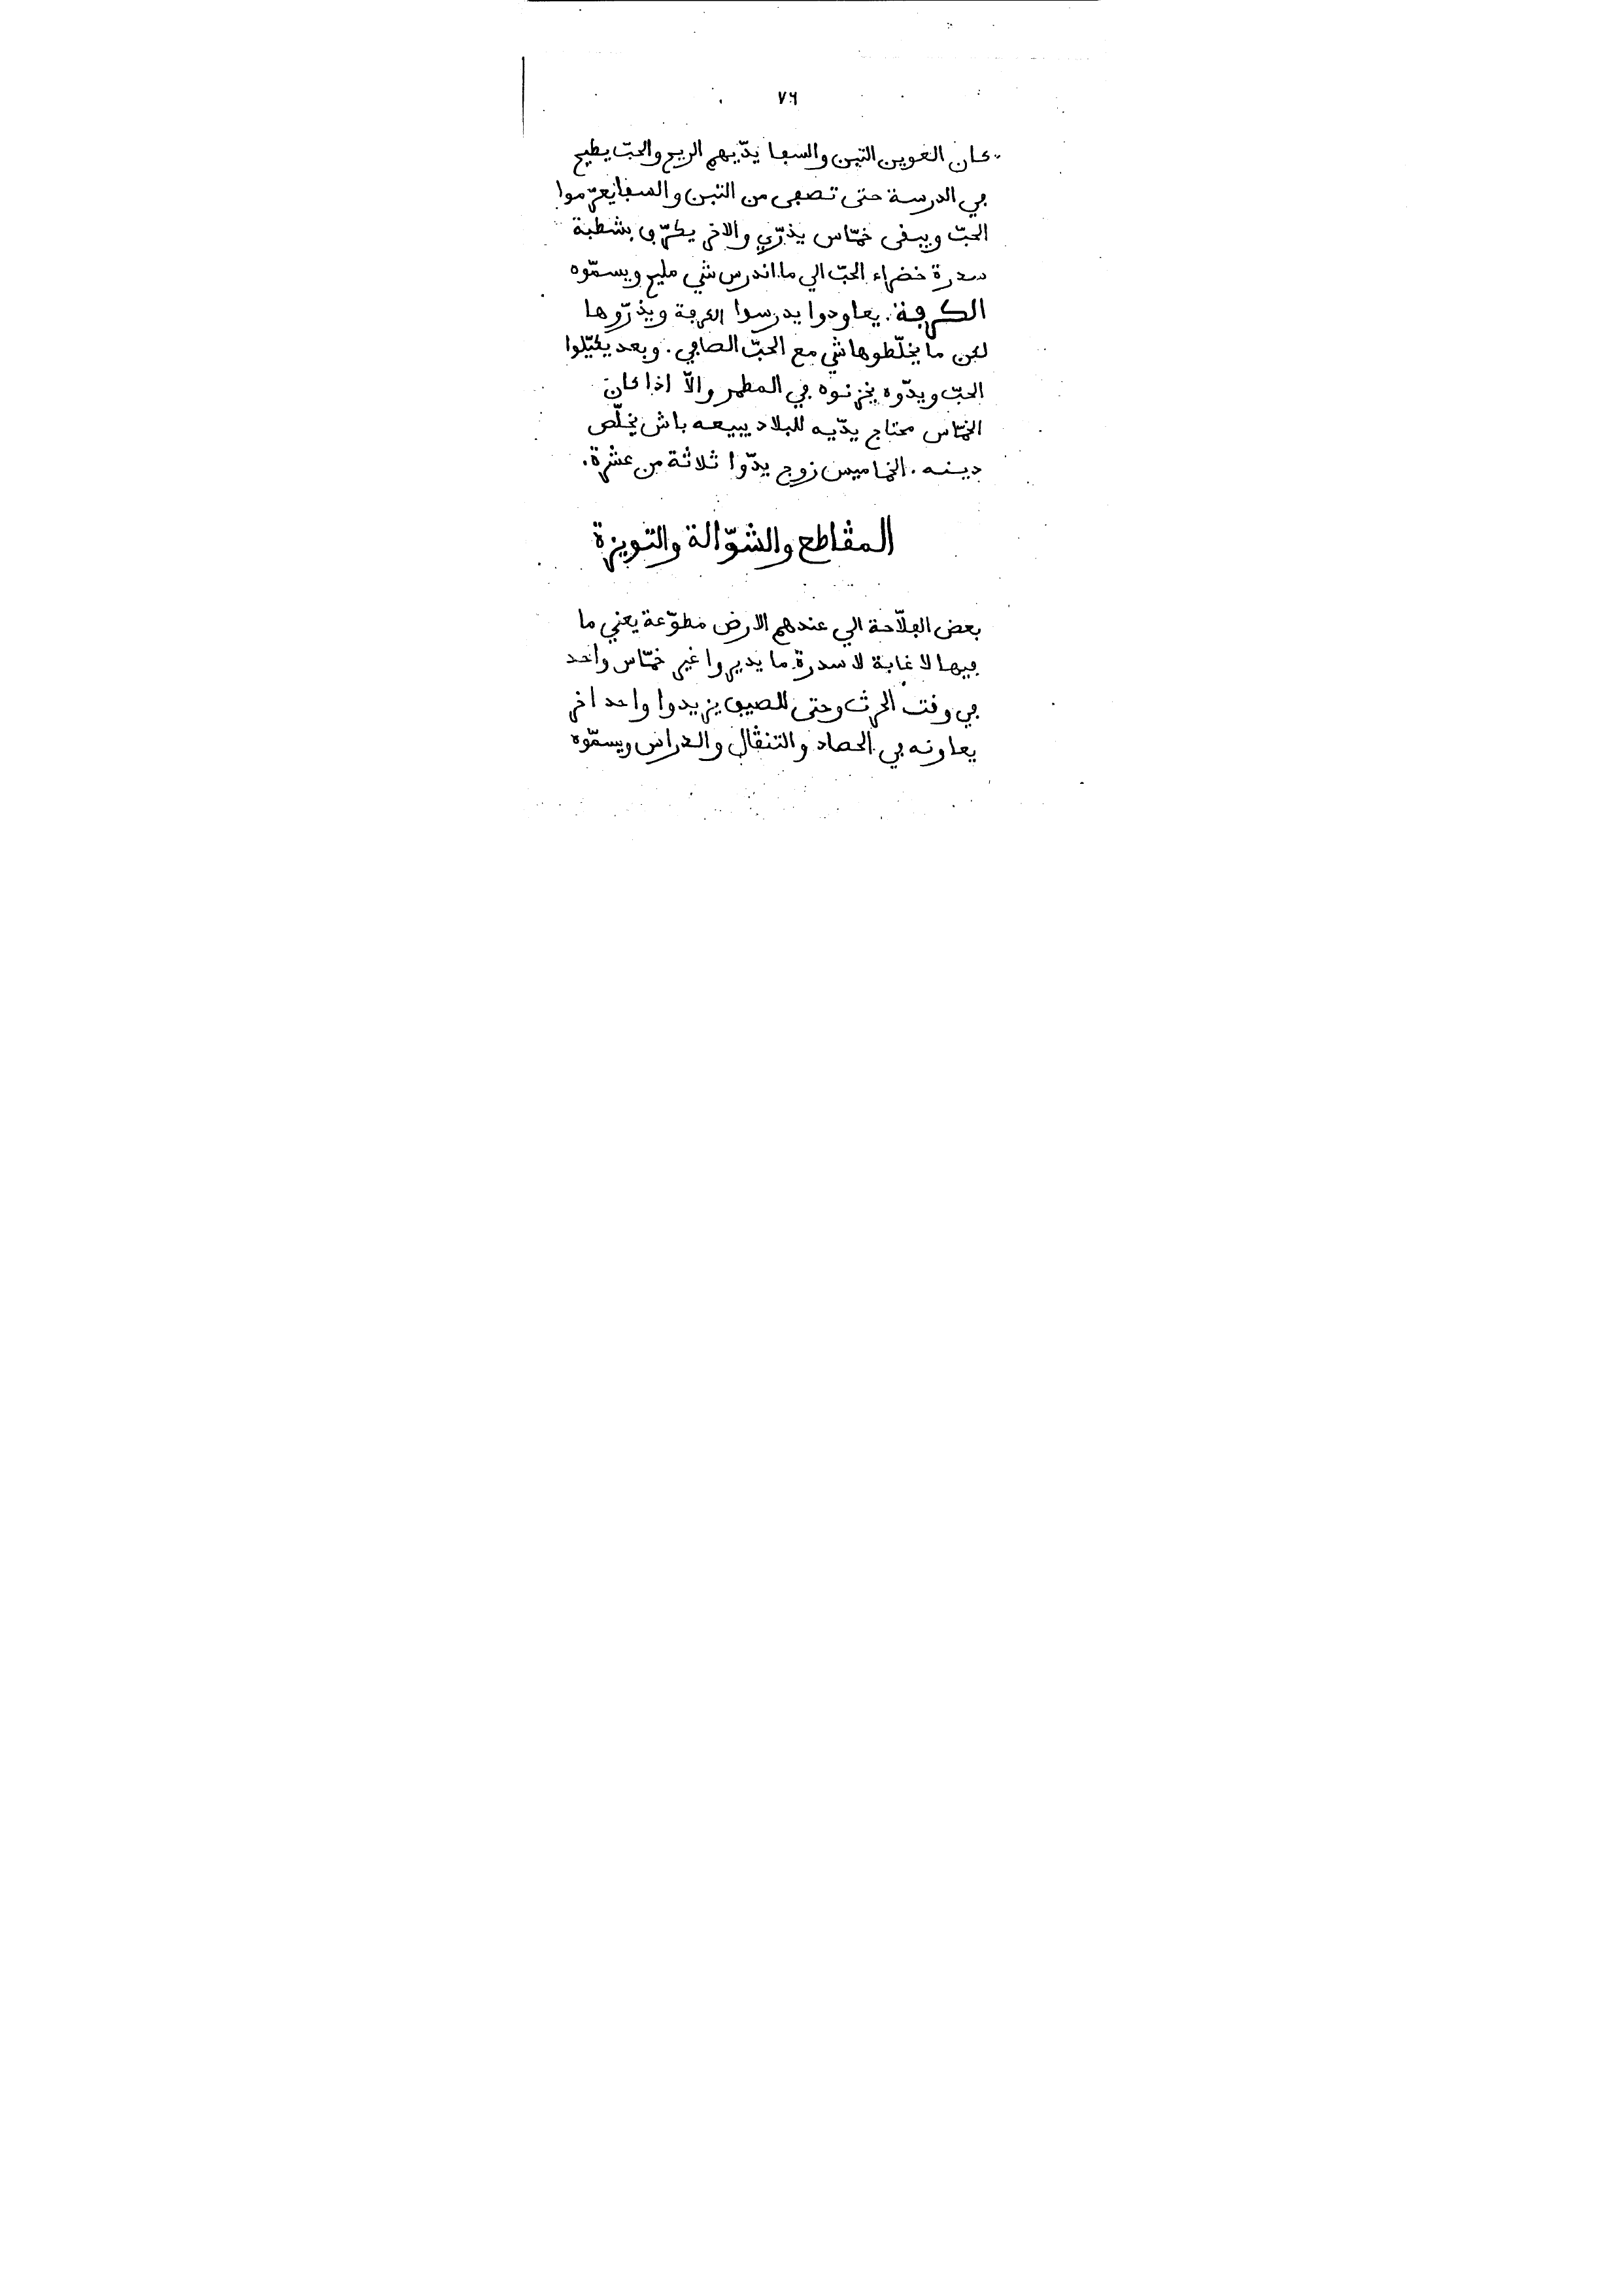 ٧٦
كان الغوين التبن والسفا يدّيهم الريح والحبّ يطيح
في الدرسة حتى تصفى من التبن والسفا يعرّموا
الحبّ ويبقى خمّاس يذرّي والاخر يكرّف بشطبة
سدرة خضراء الحبّ الي ما اندرس شي مليح ويسمّوه
الكرفة. يعاودوا يدرسوا الكرفة ويذرّوها
لكن ما يخلّطوها شي مع الحبّ الصافي. وبعد يكيّلوا
الحبّ ويدّوه يخزنوه في المطمر والّا اذا كان
الخمّاس محتاج يدّيه للبلاد يبيعه باش يخلّص
دينه. الخماميس زوج يدّوا ثلاثة من عشرة.
المڤاطع والشوّالة والتويزة
بعض الفلّاحة الي عندهم الارض مطوّعة يعني ما
فيها لا غابة لا سدرة ما يديروا غير خمّاس واحد
في وقت الحرث وحتى للصيف يزيدوا واحد اخر
يعاونه في الحصاد والتنڤال والدراس ويسمّوه